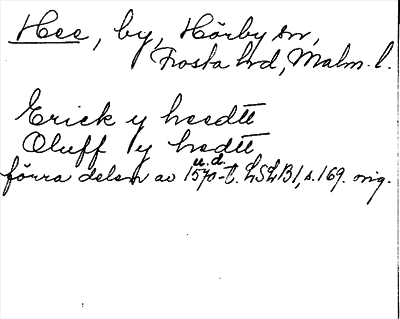 Hee, by, Hörby sn,
Frosta hd, Malm. l.
Erick y heedtt
Oluff y hedtt
u.d.
förra delen av 1570-t. LSLB1, s. 169. orig.